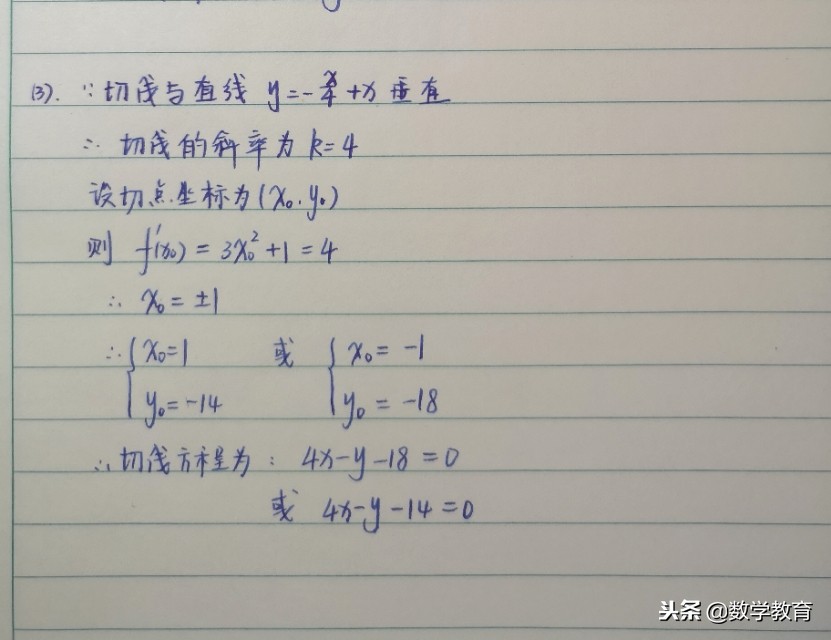 (3). ∵切线与直线 y=-x/4+x 垂直
∴ 切线的斜率为 k=4
设切点坐标为(x₀.y₀)
则 f'(x₀) = 3x₀²+1 = 4
∴ x₀ = ±1
∴ { x₀=1 或 { x₀= -1
y₀=-14 y₀ = -18
∴切线方程为: 4x-y-18=0
或 4x-y-14=0
头条 @数学教育